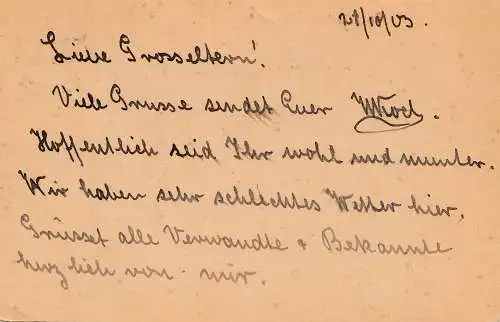 28/10/03.
Liebe Grosseltern!
Viele Grusse sendet Euer
Hoffentlich seid Ihr wohl und munter.
Wir haben sehr schlechtes Wetter hier.
Grüsset alle Verwandte & Bekannte
herzlich von mir.